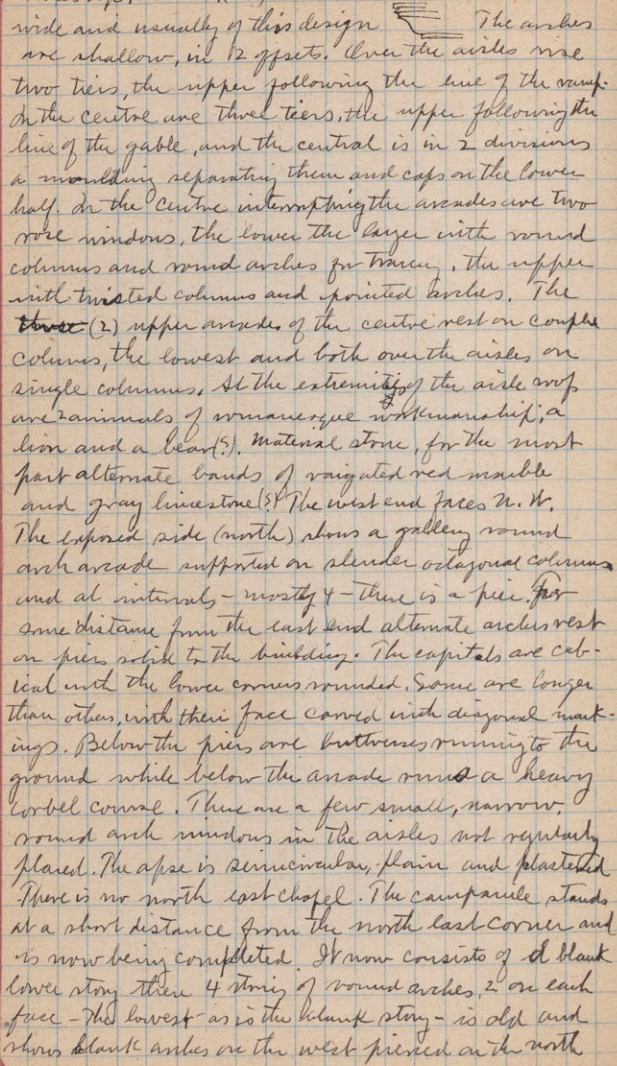 wide and usually of this design The arches
are shallow, in 2 offsets. Over the aisles rise
two tiers, the upper following the line of the ramp.
In the centre are three tiers, the upper following the
line of the gable, and the central is in 2 divisions
a moulding separating them and caps on the lower
half. In the centre interrupting the arcades are two
rose windows, the lower the larger with round
columns and round arches for tracery, the upper
with twisted columns and pointed arches. The
three (2) upper arcades of the centre rest on couple
columns, the lowest and both over the aisles on
single columns. At the extremities of the aisle roofs
are 2 animals of romanesque workmanship; a
lion and a bear(?). Material stone, for the most
part alternate bands of varigated red marble
and gray limestone(?) The west end faces N.W.
The exposed side (north) shows a gallery round
arch arcade supported on slender octagonal columns
and at intervals - mostly 4 - there is a pier. For
some distance from the east end alternate arches rest
on piers solid to the building. The capitals are cub-
ical with the lower corners rounded. Some are longer
than others, with their face carved with diagonal mark-
ings. Below the piers are buttresses running to the
ground while below the arcade runs a heavy
corbel course. There are a few small, narrow,
round arch windows in the aisles not regularly
placed. The apse is semicircular, plain and plastered
There is no north east chapel. The campanile stands
at a short distance from the north east corner and
is now being completed. It now consists of a blank
lower story then 4 stories of round arches, 2 on each
face - The lowest - as is the blank story - is old and
shows blank arches on the west pierced on the north